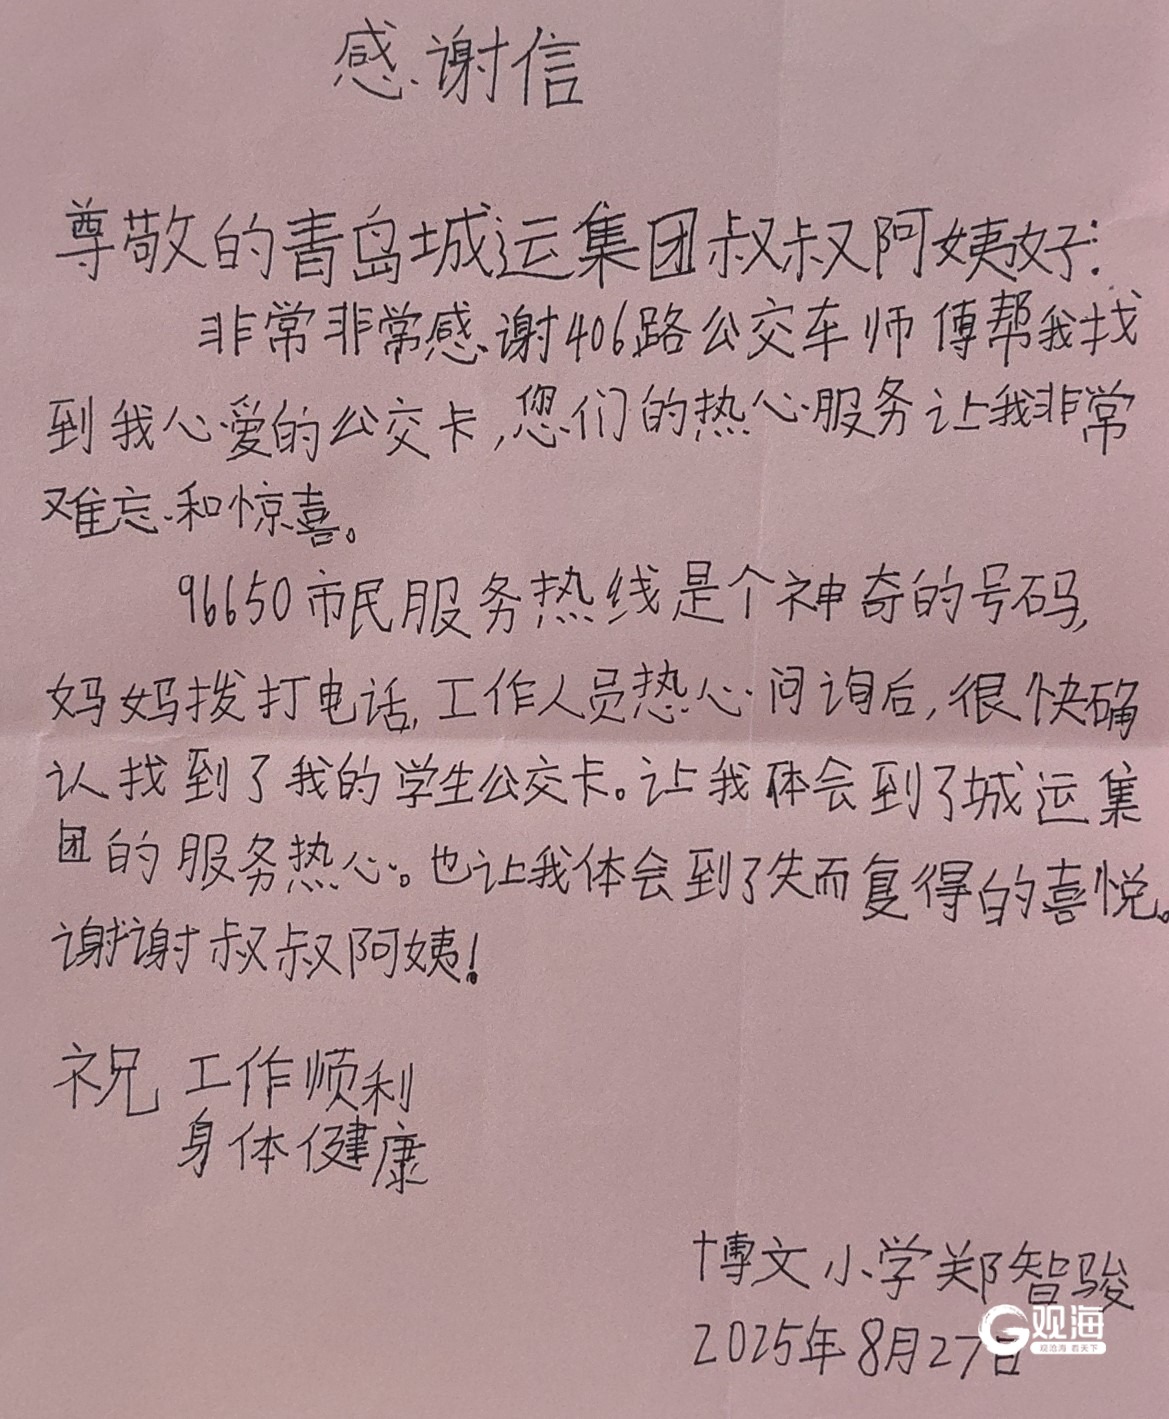 感谢信
尊敬的青岛城运集团叔叔阿姨好:
非常非常感谢406路公交车师傅帮我找
到我心爱的公交卡,您们的热心服务让我非常
难忘和惊喜。
96650市民服务热线是个神奇的号码,
妈妈拨打电话,工作人员热心问询后,很快确
认找到了我的学生公交卡。让我体会到了城运集
团的服务热心。也让我体会到了失而复得的喜悦。
谢谢叔叔阿姨!
祝 工作顺利
身体健康
博文小学郑智骏
2025年8月27日
观海
观沧海 看天下